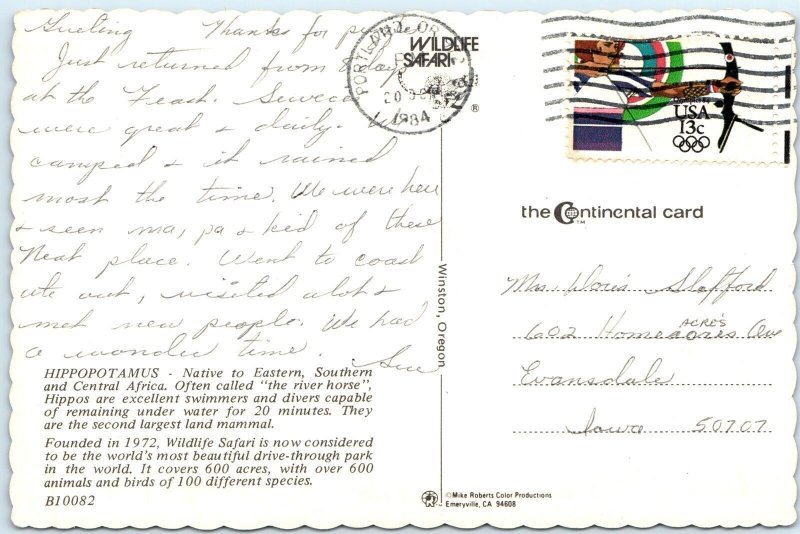 Greeting Thanks for
Just returned from
at the Feast.
were great & daily. We
camped & it rained
most the time. We were here
& seen ma, pa & kid of these
Neat place. Went to coast
ate out, visited alot &
met new people. We had
a wonder time. Sue
HIPPOPOTAMUS - Native to Eastern, Southern
and Central Africa. Often called "the river horse",
Hippos are excellent swimmers and divers capable
of remaining under water for 20 minutes. They
are the second largest land mammal.
Founded in 1972, Wildlife Safari is now considered
to be the world's most beautiful drive-through park
in the world. It covers 600 acres, with over 600
animals and birds of 100 different species.
B10082
WILDLIFE
SAFARI
®
PORTLAND OR
20
1984
USA
13c
Winston, Oregon
the Continental card
TM
Mrs Doris Stafford
ACRE'S
602 Home acres Ave
Evansdale
Iowa 50707
©Mike Roberts Color Productions
Emeryville, CA 94608